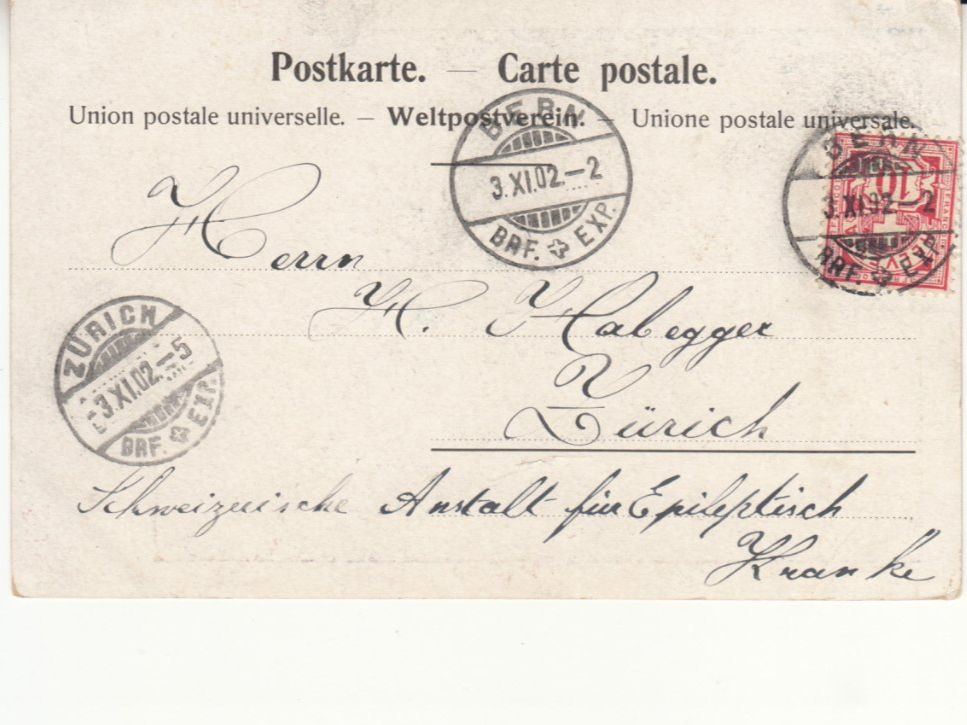 Postkarte. — Carte postale.
Union postale universelle. — Weltpostverein. — Unione postale universale.
BERN
3.XI.02.–2
BRF. EXP.
BERN
3.XI.02.–2
BRF. EXP.
10
Herrn
H. Habegger
Zürich
ZÜRICH
3.XI.02.–5
BRF. EXP.
Schweizerische Anstalt für Epileptisch
Kranke